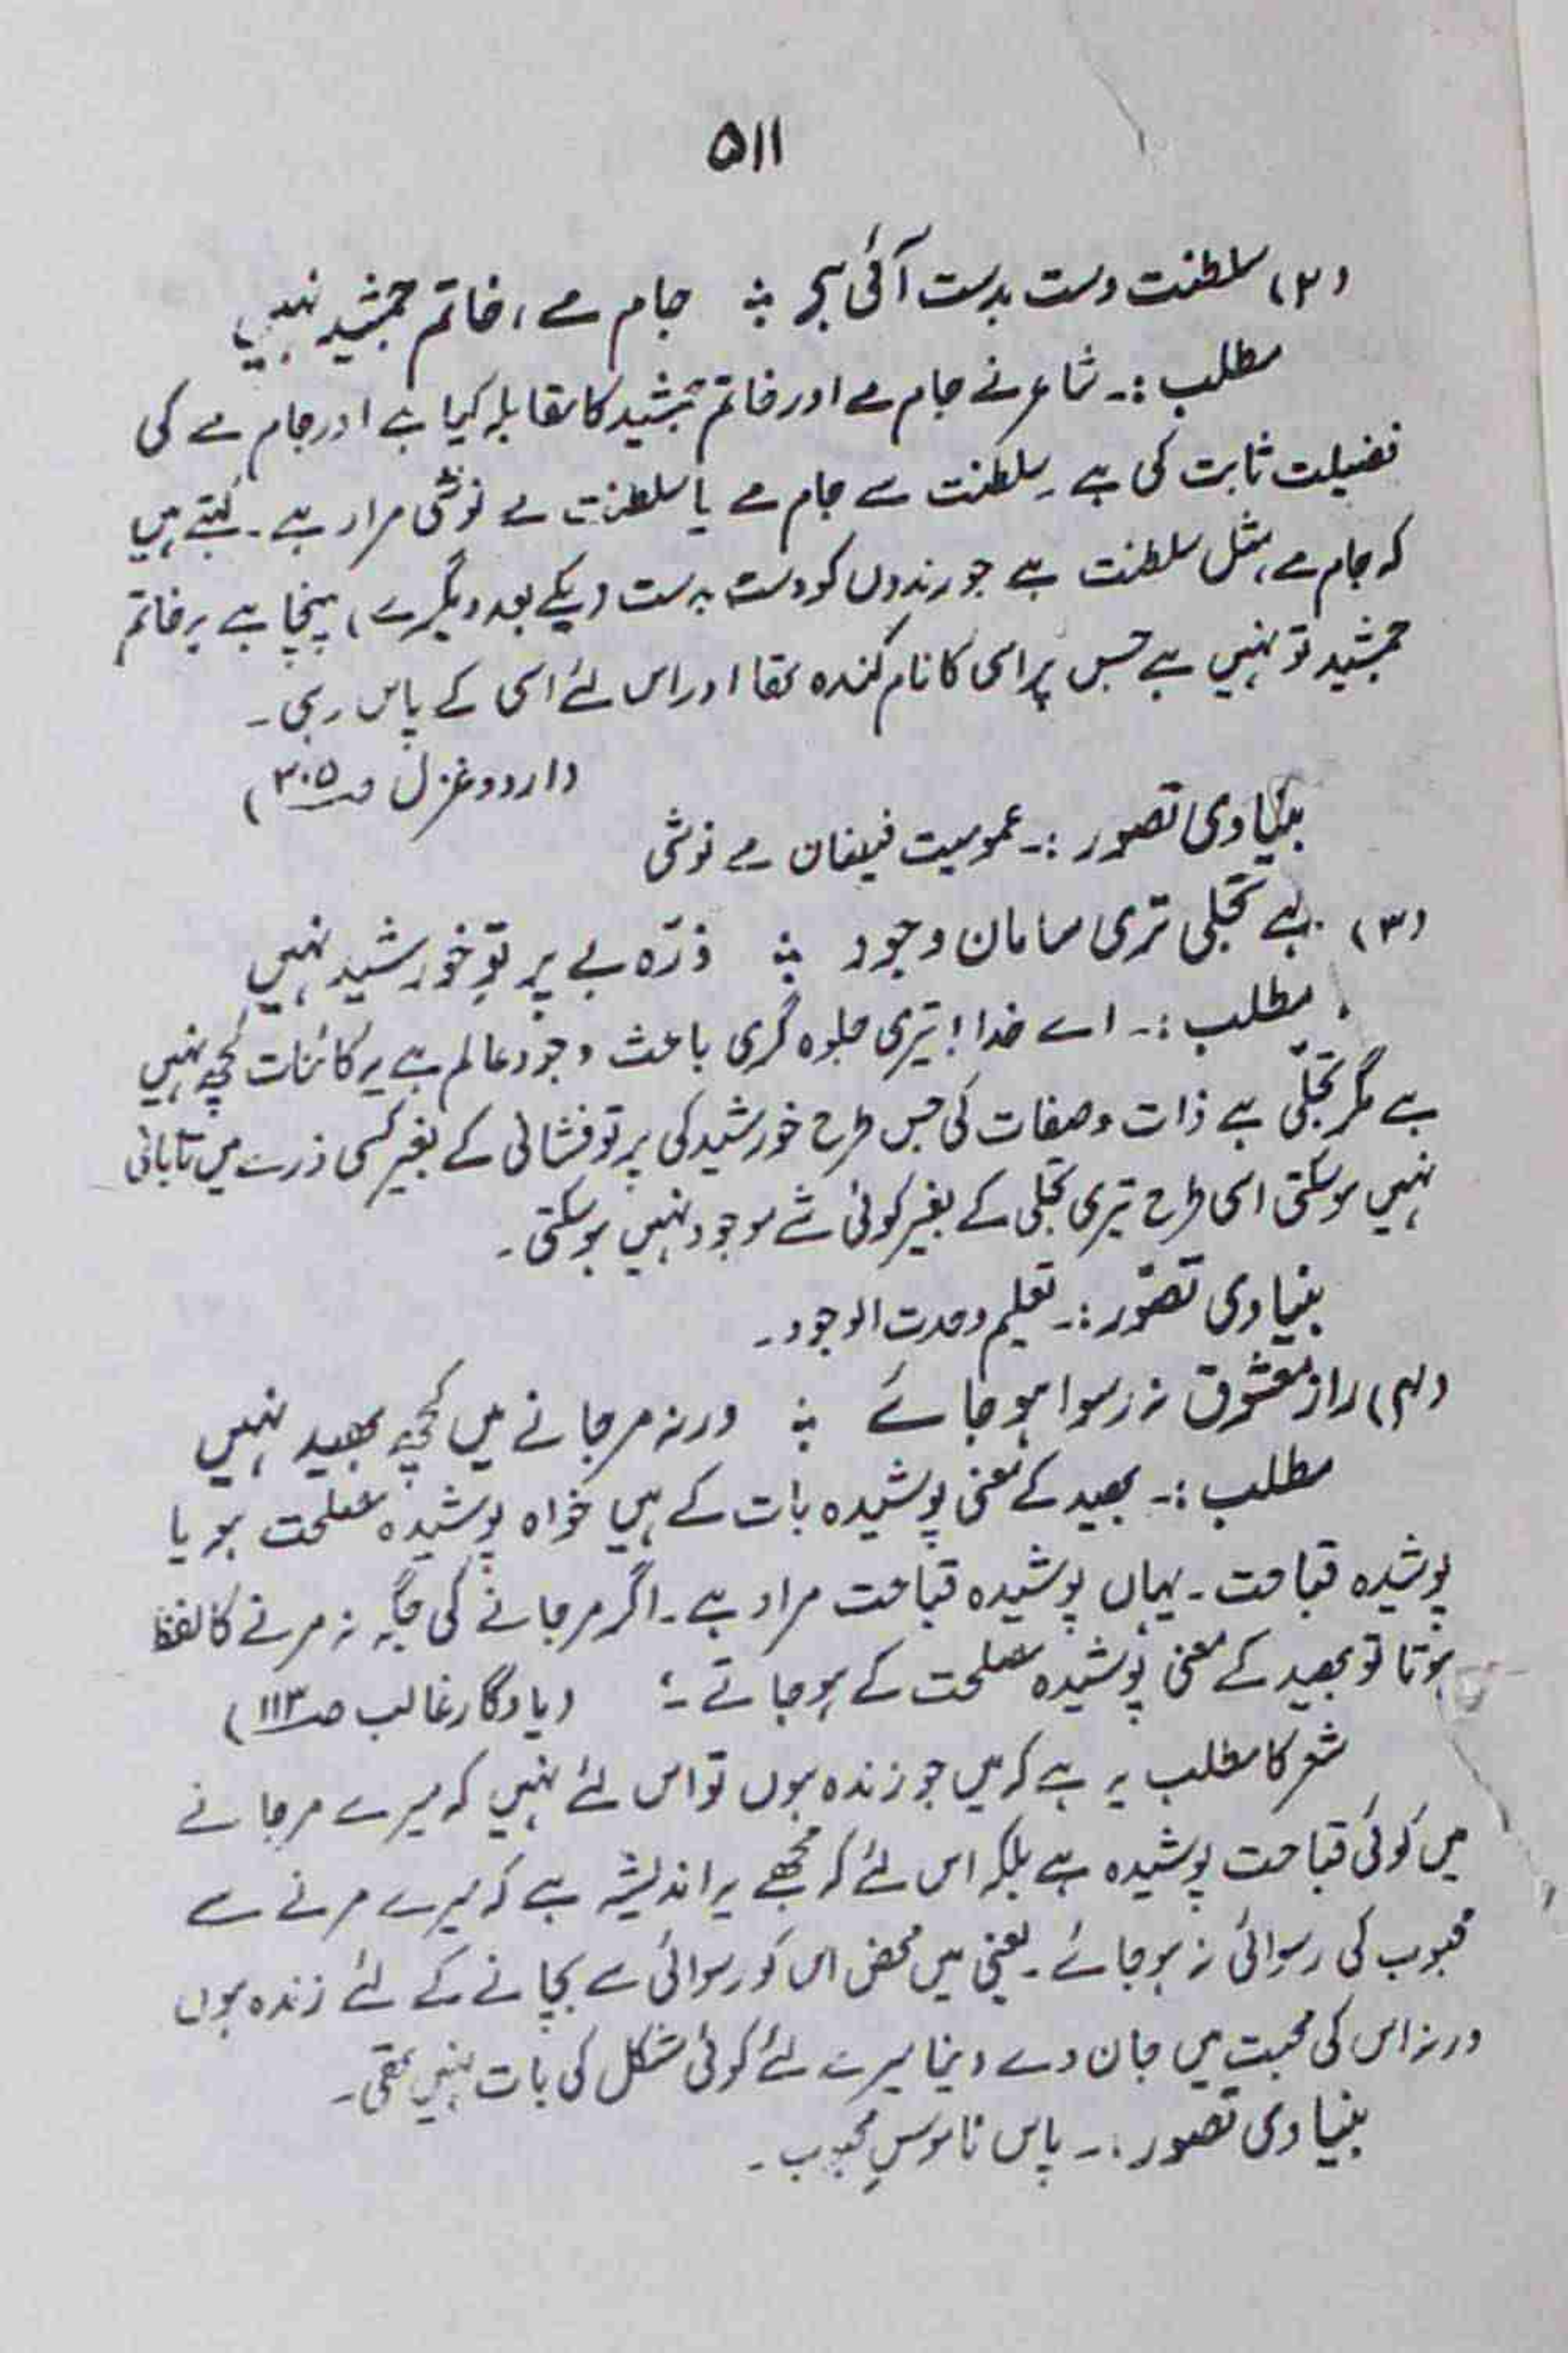 ۵۱۱
(۲) سلطنت دست بدست آئی ہے ؞ جام مے، خاتم جمشید نہیں
مطلب :۔ شاعر نے جام مے اور خاتم جمشید کا مقابلہ کیا ہے اور جام مے کی
فضیلت ثابت کی ہے۔ سلطنت سے جام مے یا سلطنت مے نوشی مراد ہے۔ کہتے ہیں
کہ جام مے، مثل سلطنت ہے جو رندوں کو دست بہ دست (یکے بعد دیگرے) پہنچا ہے یہ خاتم
جمشید تو نہیں ہے جس پر اسی کا نام کندہ تھا اور اس لئے اسی کے پاس رہی۔
(اردو غزل ص۳۰۵)
بنیادی تصور :۔ عمومیت فیضان مے نوشی
(۳) ہے تجلی تری سامان وجود ؞ ذرّہ بے پرتوِ خورشید نہیں
مطلب :۔ اے خدا! تیری جلوہ گری باعث وجود عالم ہے یہ کائنات کچھ نہیں
ہے مگر تجلّی ہے ذات و صفات کی جس طرح خورشید کی پرتو فشانی کے بغیر کسی ذرے میں تابانی
نہیں ہوسکتی اسی طرح تیری تجلی کے بغیر کوئی شے موجود نہیں ہوسکتی۔
بنیادی تصّور :۔ تعلیم وحدت الوجود۔
(۴) راز معشوق نہ رسوا ہو جائے ؞ ورنہ مر جانے میں کچھ بھید نہیں
مطلب :۔ بھید کے معنی پوشیدہ بات کے ہیں خواہ پوشیدہ مصلحت ہو یا
پوشیدہ قباحت۔ یہاں پوشیدہ قباحت مراد ہے۔ اگر مر جانے کی جگہ نہ مرنے کا لفظ
ہوتا تو بھید کے معنی پوشیدہ مصلحت کے ہو جاتے ؛ (یادگار غالب ص۱۱۳)
شعر کا مطلب یہ ہے کہ میں جو زندہ ہوں تو اس لئے نہیں کہ میرے مر جانے
میں کوئی قباحت پوشیدہ ہے بلکہ اس لئے کہ مجھے یہ اندیشہ ہے کہ میرے مرنے سے
محبوب کی رسوائی نہ ہو جائے۔ یعنی میں محض اس کو رسوائی سے بچانے کے لئے زندہ ہوں
ورنہ اس کی محبت میں جان دے دینا میرے لئے کوئی مشکل کی بات نہیں تھی۔
بنیادی تصور :۔ پاس ناموسِ محبوب۔